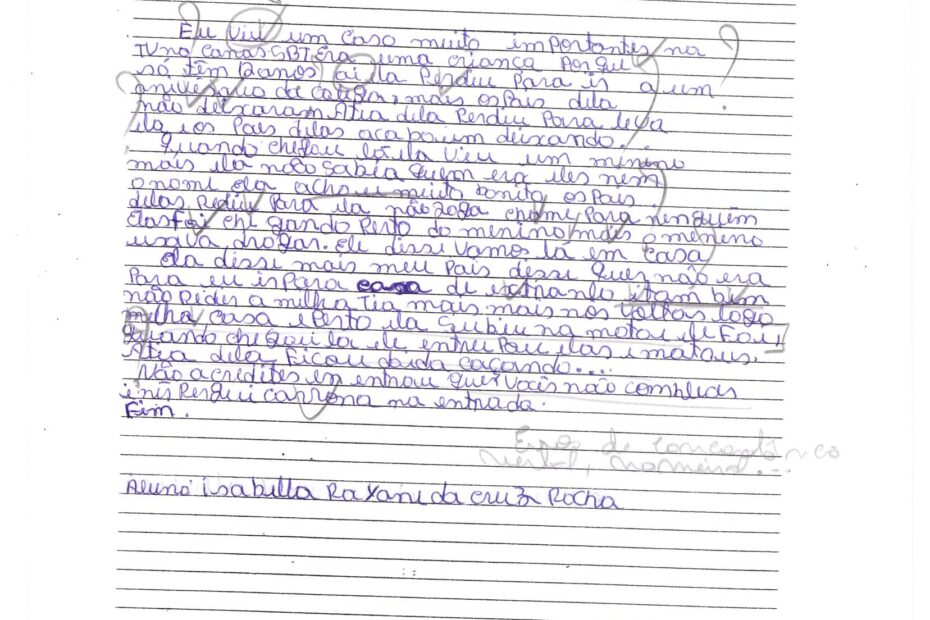 Eu viu um caso muito importantes na
TV no canas SBT era uma criança porque
só têm 12 anos ai ela Perdiu Para is a um
aniversário de coliga, mais os Pais dela
não deixaram Atia dela Perdiu Para leva
ela eos Pais delas acapo um deixando...
Quando chegou lá ela viu um menino
mais ela não sabia quem era eles nem
o nomi ela achou muito bonito os Pais
delas Pediu Para ela não joga chomi Para nenguém
Elas foi che gando Perto do menino mais o menino
usava drogas. ele dissi vamos lá em casa
Ela dissi mais meu Pais dessi ques não era
Para eu is para casa de estranho itam bém
não Pedes a milha Tia mais mais nos voltas logo
milha casa e Perto ela subiu na motou ele foi,
Quando chequi la ele entrou Pau elas i matous.
Atia dela Ficou doida caçando....
Não acredites en entrou ques vocis não conhecis
i nis Perqui carrona na entrada.
Fim.
Erros de concordância
verbal, nomeira...
Aluno isabella Rayani da cruz Rocha